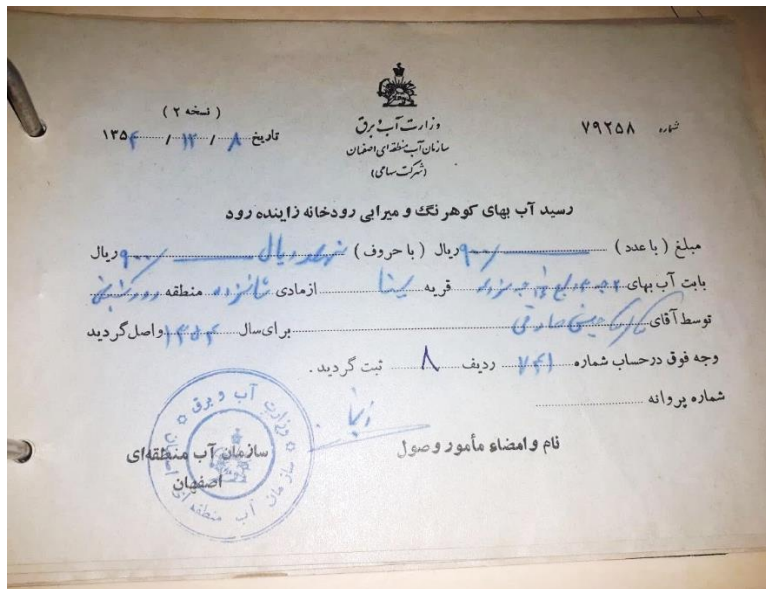 ( نسخه ۲ )
تاریخ ۸ / ۱۲ / ۱۳۵۴
وزارت آب و برق
سازمان آب منطقه‌ای اصفهان
(شرکت سهامی)
شماره ۷۹۲۵۸
رسید آب بهای کوهرنگ و میرابی رودخانه زاینده رود
مبلغ ( با عدد ) ۹۰۰/ ریال ( با حروف ) نهصد ریال ۹۰۰/ ریال
بابت آب بهای قریه ازمادی شانزده منطقه
توسط آقای صادقی برای سال ۱۳۵۴ واصل گردید
وجه فوق در حساب شماره ۷۴۱ ردیف ۸ ثبت گردید .
شماره پروانه
نام و امضاء مأمور وصول
سازمان آب منطقه‌ای
اصفهان
وزارت آب و برق
سازمان آب منطقه ای اصفهان